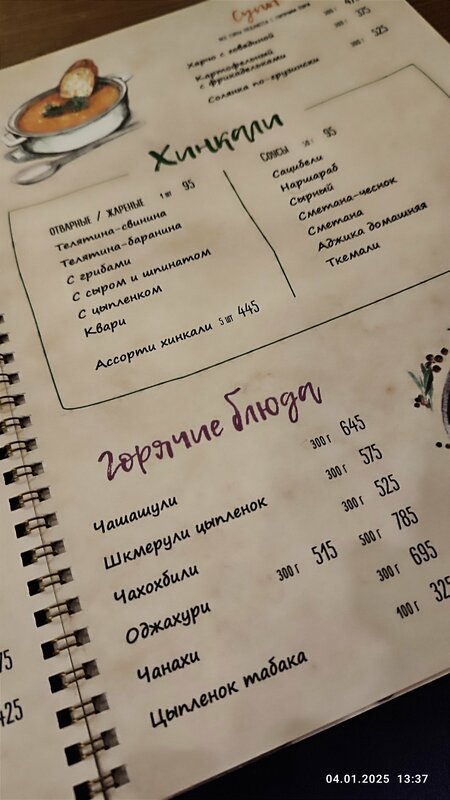 Супы
Харчо с говядиной
Картофельный 375
с фрикадельками
Солянка по-грузински 325
Хинкали
ОТВАРНЫЕ / ЖАРЕНЫЕ 1 шт 95
Телятина-свинина
Телятина-баранина
С грибами
С сыром и шпинатом
С цыпленком
Квари
Ассорти хинкали 5 шт 445
СОУСЫ 50 г 95
Сацибели
Наршараб
Сырный
Сметана-чеснок
Сметана
Аджика домашняя
Ткемали
горячие блюда
Чашашули 300 г 645
Шкмерули цыпленок 300 г 575
Чахохбили 300 г 525
Оджахури 300 г 515 500 г 785
Чанахи 300 г 695
Цыпленок табака 100 г 325
75
425
04.01.2025 13:37